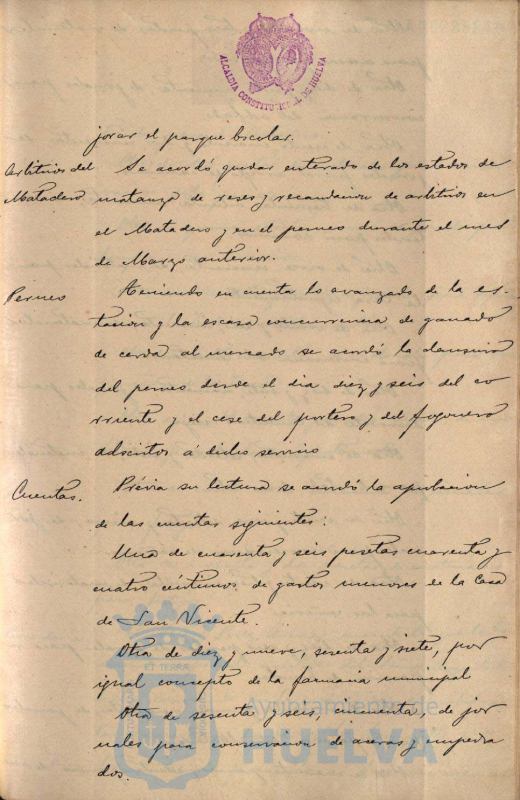 ALCALDIA CONSTITUCIONAL DE HUELVA
jorar el parque Escolar.
Arbitrios del Matadero
Se acordó quedar enterado de los estados de
matanza de reses y recaudacion de arbitrios en
el Matadero y en el perneo durante el mes
de Marzo anterior.
Perneo
Teniendo en cuenta lo avanzado de la es-
tacion y la escasa concurrencia de ganado
de cerda al mercado se acordó la clausura
del perneo desde el dia diez y seis del co
rriente y el cese del portero y del fogonero
adscritos á dicho servicio
Cuentas.
Prévia su lectura se acordó la aprobacion
de las cuentas siguientes:
Una de cuarenta y seis pesetas cuarenta y
cuatro céntimos de gastos menores de la Casa
de San Vicente.
Otra de diez y nueve, sesenta y siete, por
igual concepto de la farmacia municipal
Otra de sesenta y seis, cincuenta, de jor
nales para conservacion de aceras y empedra
dos.
ET TERRA
Ayuntamiento de
HUELVA